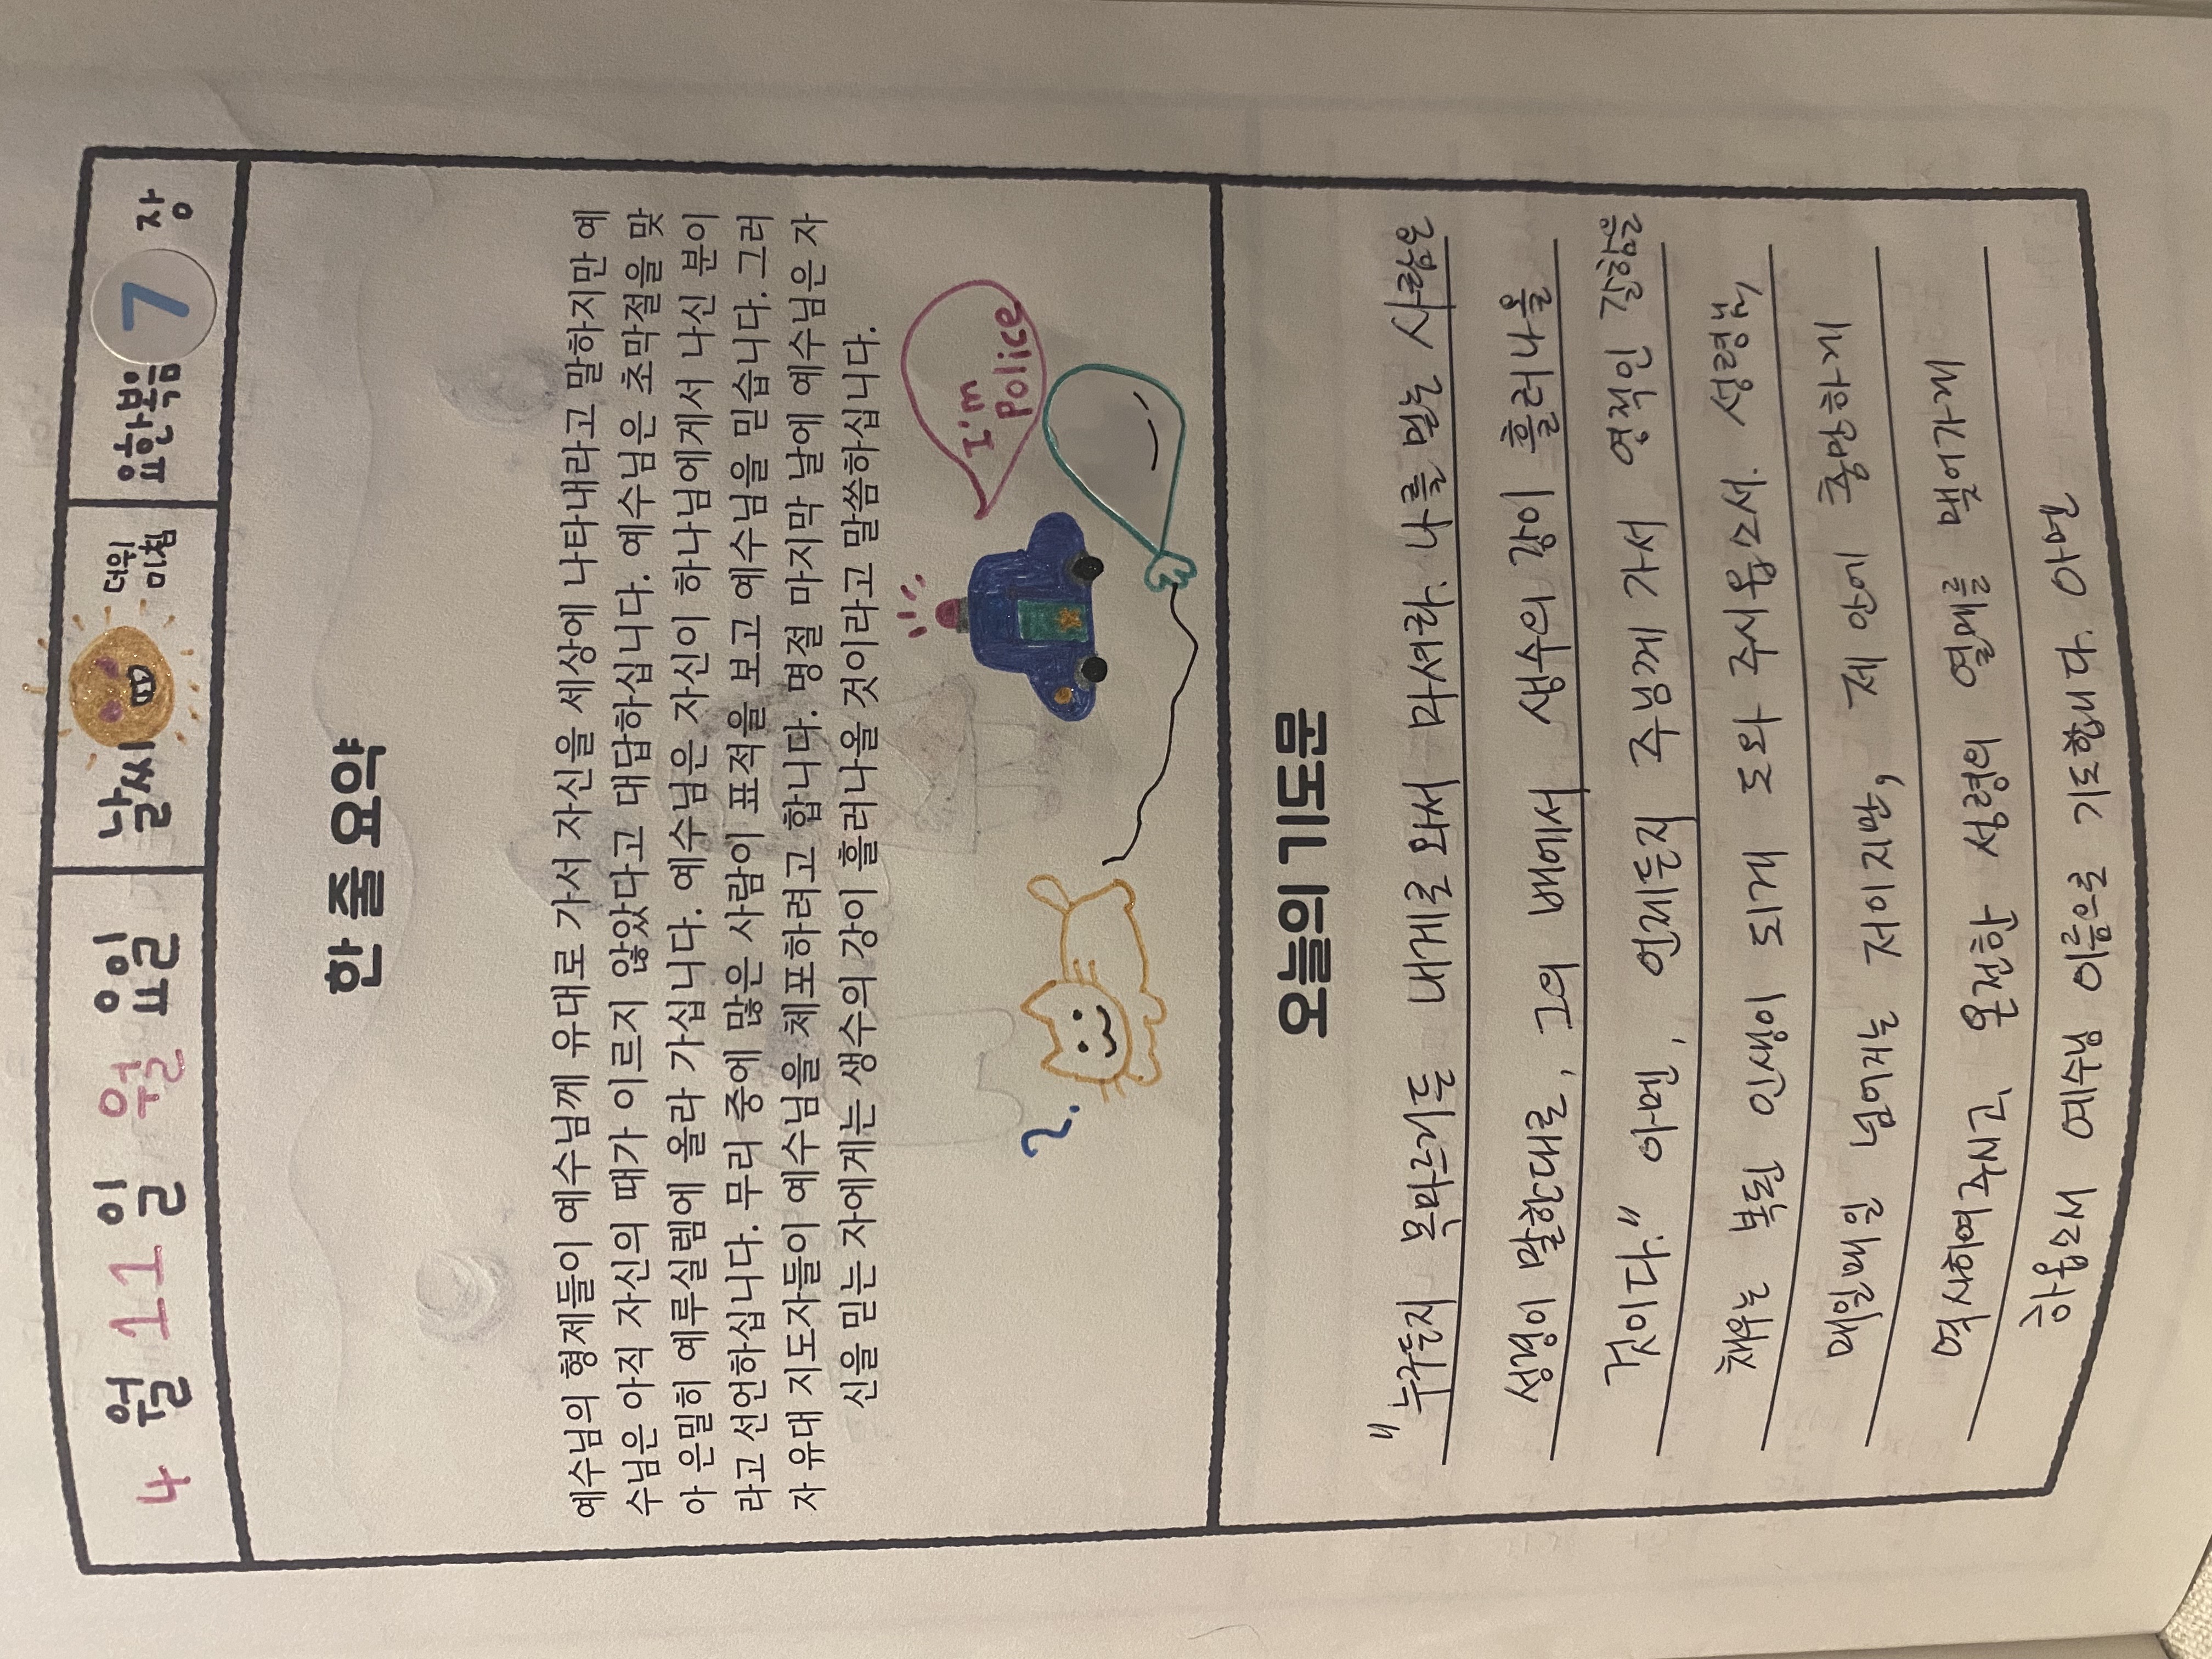 4 월 11 일 월 요일 날씨 더위 미침 요한복음 7 장
한 줄 요약
예수님의 형제들이 예수님께 유대로 가서 자신을 세상에 나타내라고 말하지만 예
수님은 아직 자신의 때가 이르지 않았다고 대답하십니다. 예수님은 초막절을 맞
아 은밀히 예루실렘에 올라 가십니다. 예수님은 자신이 하나님에게서 나신 분이
라고 선언하십니다. 무리 중에 많은 사람이 표적을 보고 예수님을 믿습니다. 그러
자 유대 지도자들이 예수님을 체포하려고 합니다. 명절 마지막 날에 예수님은 자
신을 믿는 자에게는 생수의 강이 흘러나올 것이라고 말씀하십니다.
I'm
police
오늘의 기도문
"누구든지 목마르거든 내게로 와서 마셔라. 나를 믿는 사람은
성경이 말한대로, 그의 배에서 생수의 강이 흘러나올
것이다." 아멘, 언제든지 주님께 가서 영적인 갈함을
채우는 복된 인생이 되게 도와 주시옵소서. 성령께
매일매일 넘어지는 저이지만, 제 안에 충만하게
역사하여주시고, 온전한 성령의 열매를 맺어가게
하옵소서 예수님 이름으로 기도합니다. 아멘